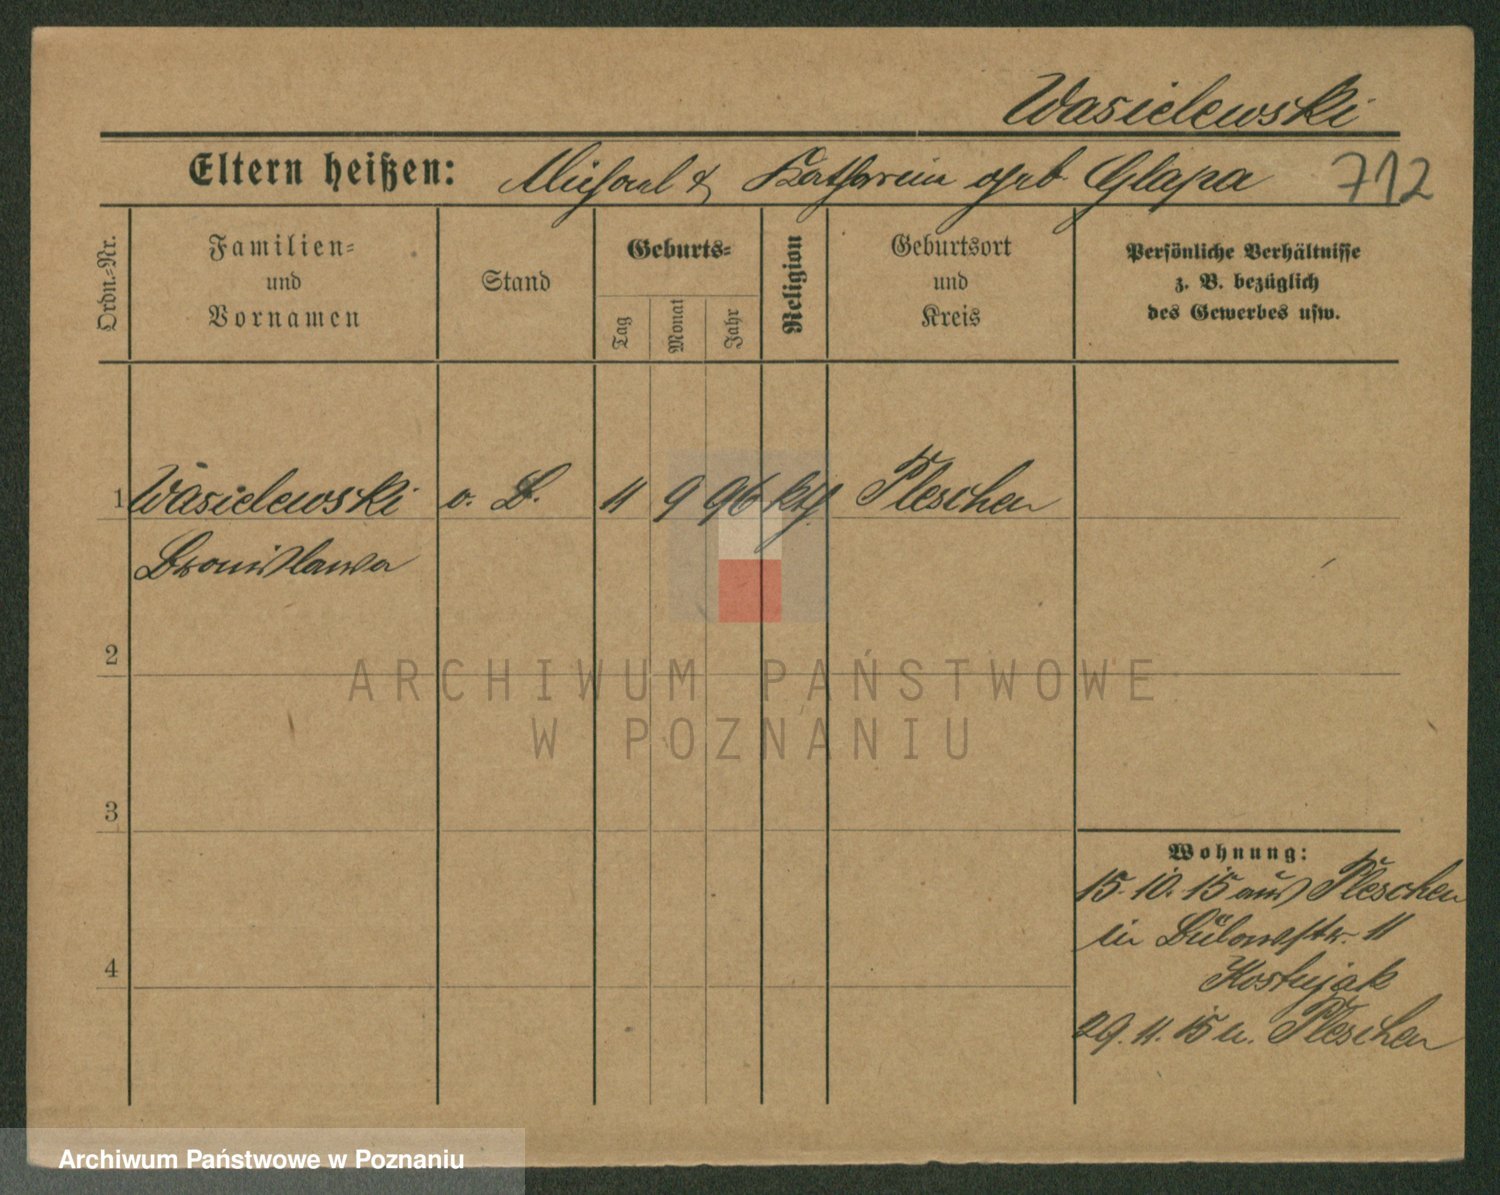 Wasielewski
Eltern heißen: Michael & Katharein geb Glapa 712
Ordn.=Nr.
Familien=
und
Vornamen
Stand
Geburts=
Tag
Monat
Jahr
Religion
Geburtsort
und
Kreis
Persönliche Verhältnisse
z. B. bezüglich
des Gewerbes usw.
1 Wasielewski o. B. 11 9 96 kth Pleschen
Bronislawa
2
3
4
Wohnung:
15.10.15 aus Pleschen
in Bülowstr. 11
Kostujak
29.11.15 n. Pleschen
ARCHIWUM PAŃSTWOWE
W POZNANIU
Archiwum Państwowe w Poznaniu